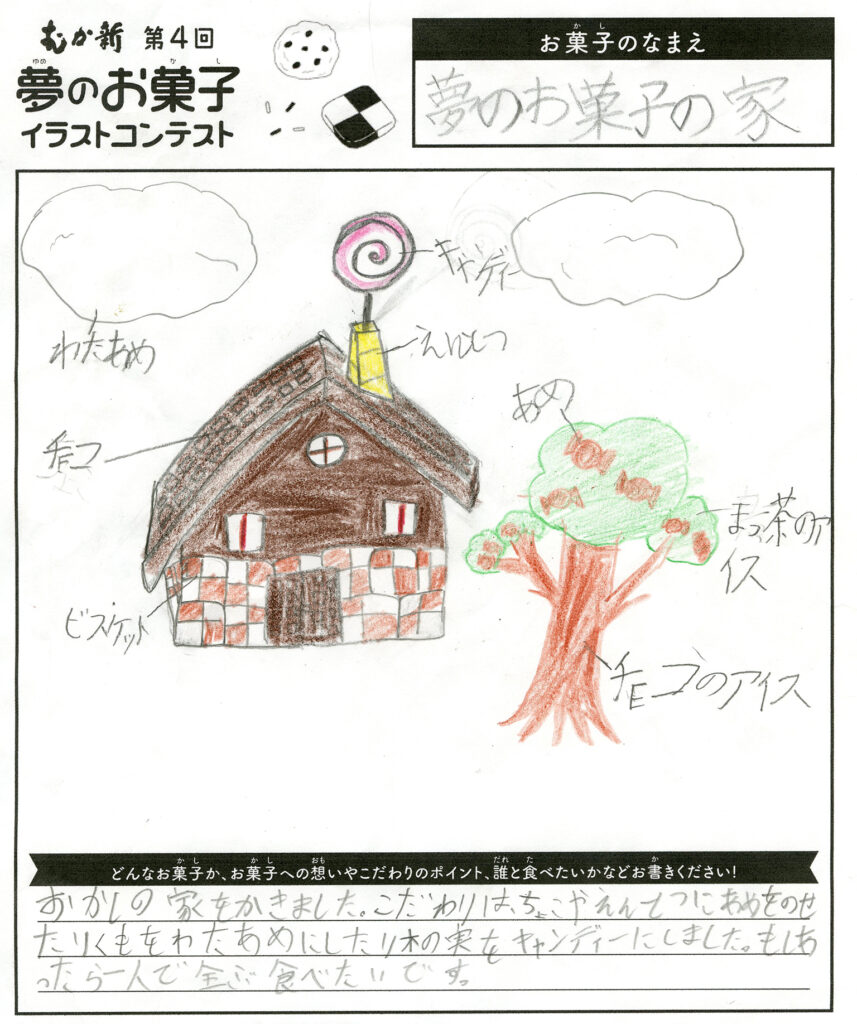 むか新 第4回
夢のお菓子
イラストコンテスト
お菓子のなまえ
夢のお菓子の家
キャンディー
わたあめ
えんとつ
あめ
チョコ
まっ茶のア
イス
ビスケット
チョコのアイス
どんなお菓子か、お菓子への想いやこだわりのポイント、誰と食べたいかなどお書きください!
おかしの家をかきました。こだわりは、ちょこやえんとつにあめをのせ
たりくもをわたあめにしたり木の実をキャンディーにしました。もしあ
ったら一人で全ぶ食べたいです。